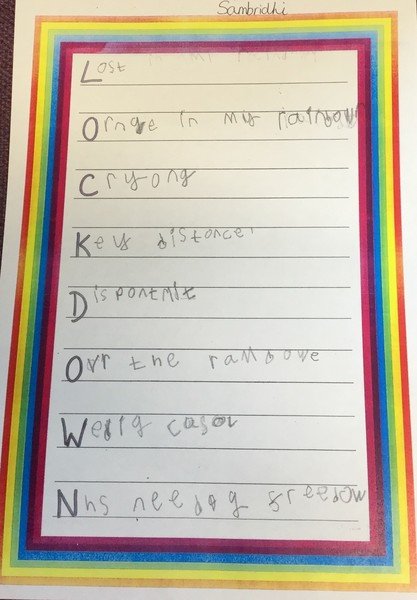 Sambridhi
Lost
Ornge in my rainbow
Cryong
Key distance
Disportnit
Ovr the rainbowe
Werig casol
Nhs needog freedow